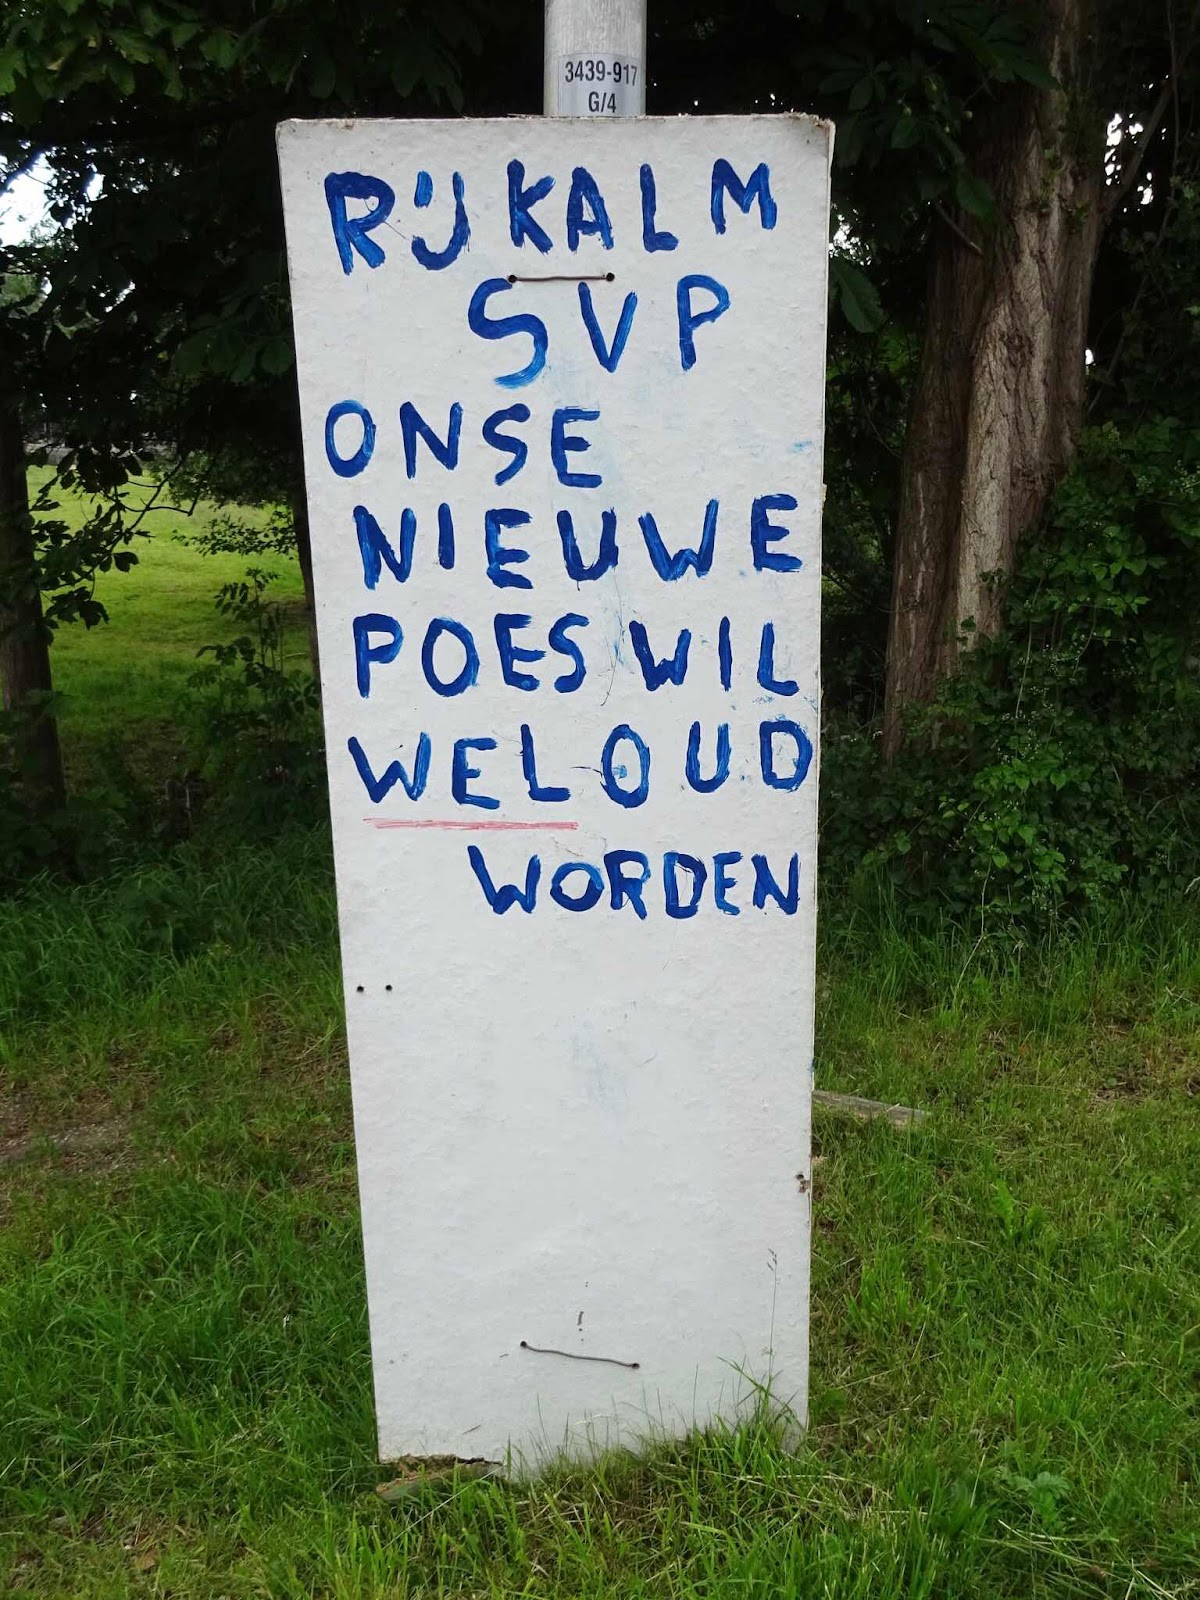 3439-917
G/4
RIJ KALM
SVP
ONSE
NIEUWE
POES WIL
WEL OUD
WORDEN